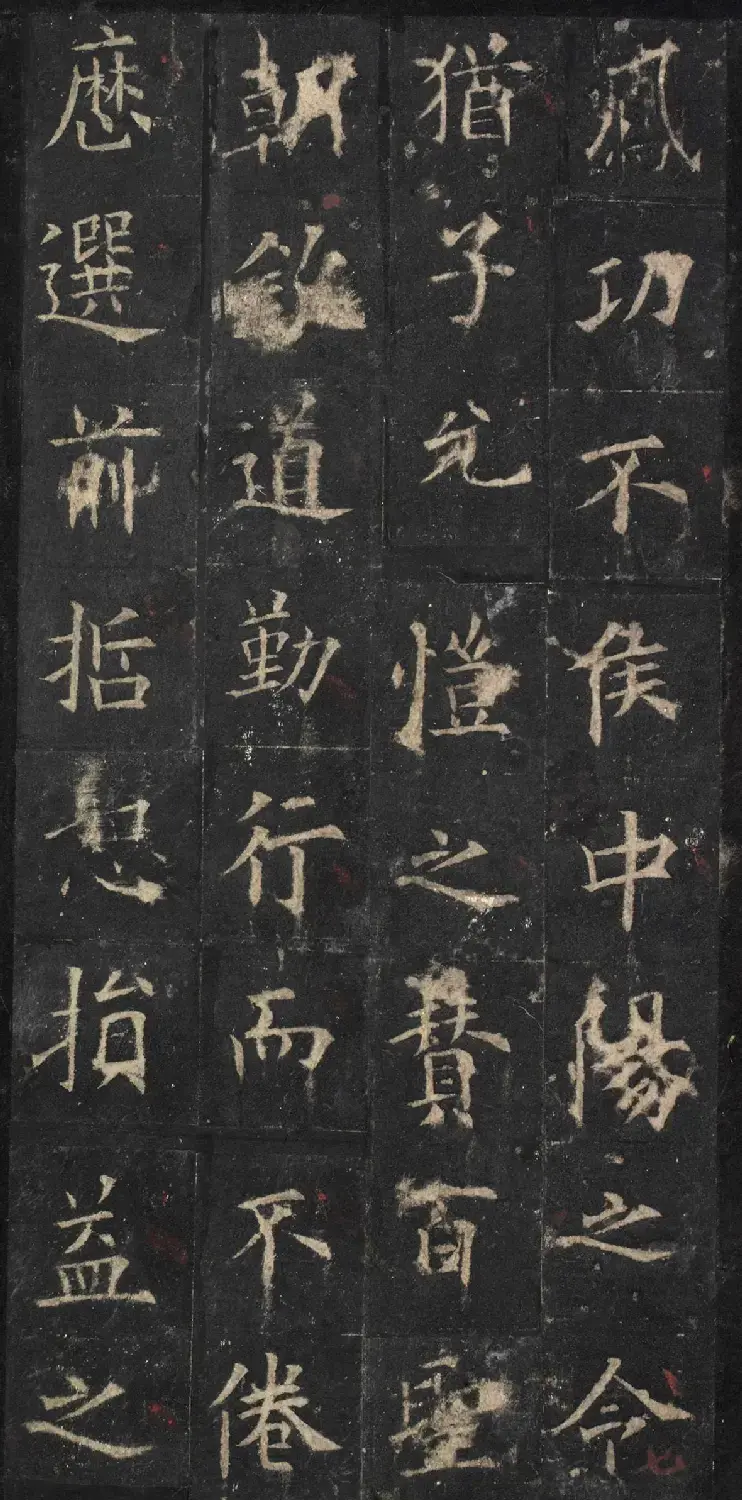 功不侯中陽之令
猶子愷之賛百聖
朝道勤行而不倦
歷選前哲思損益之